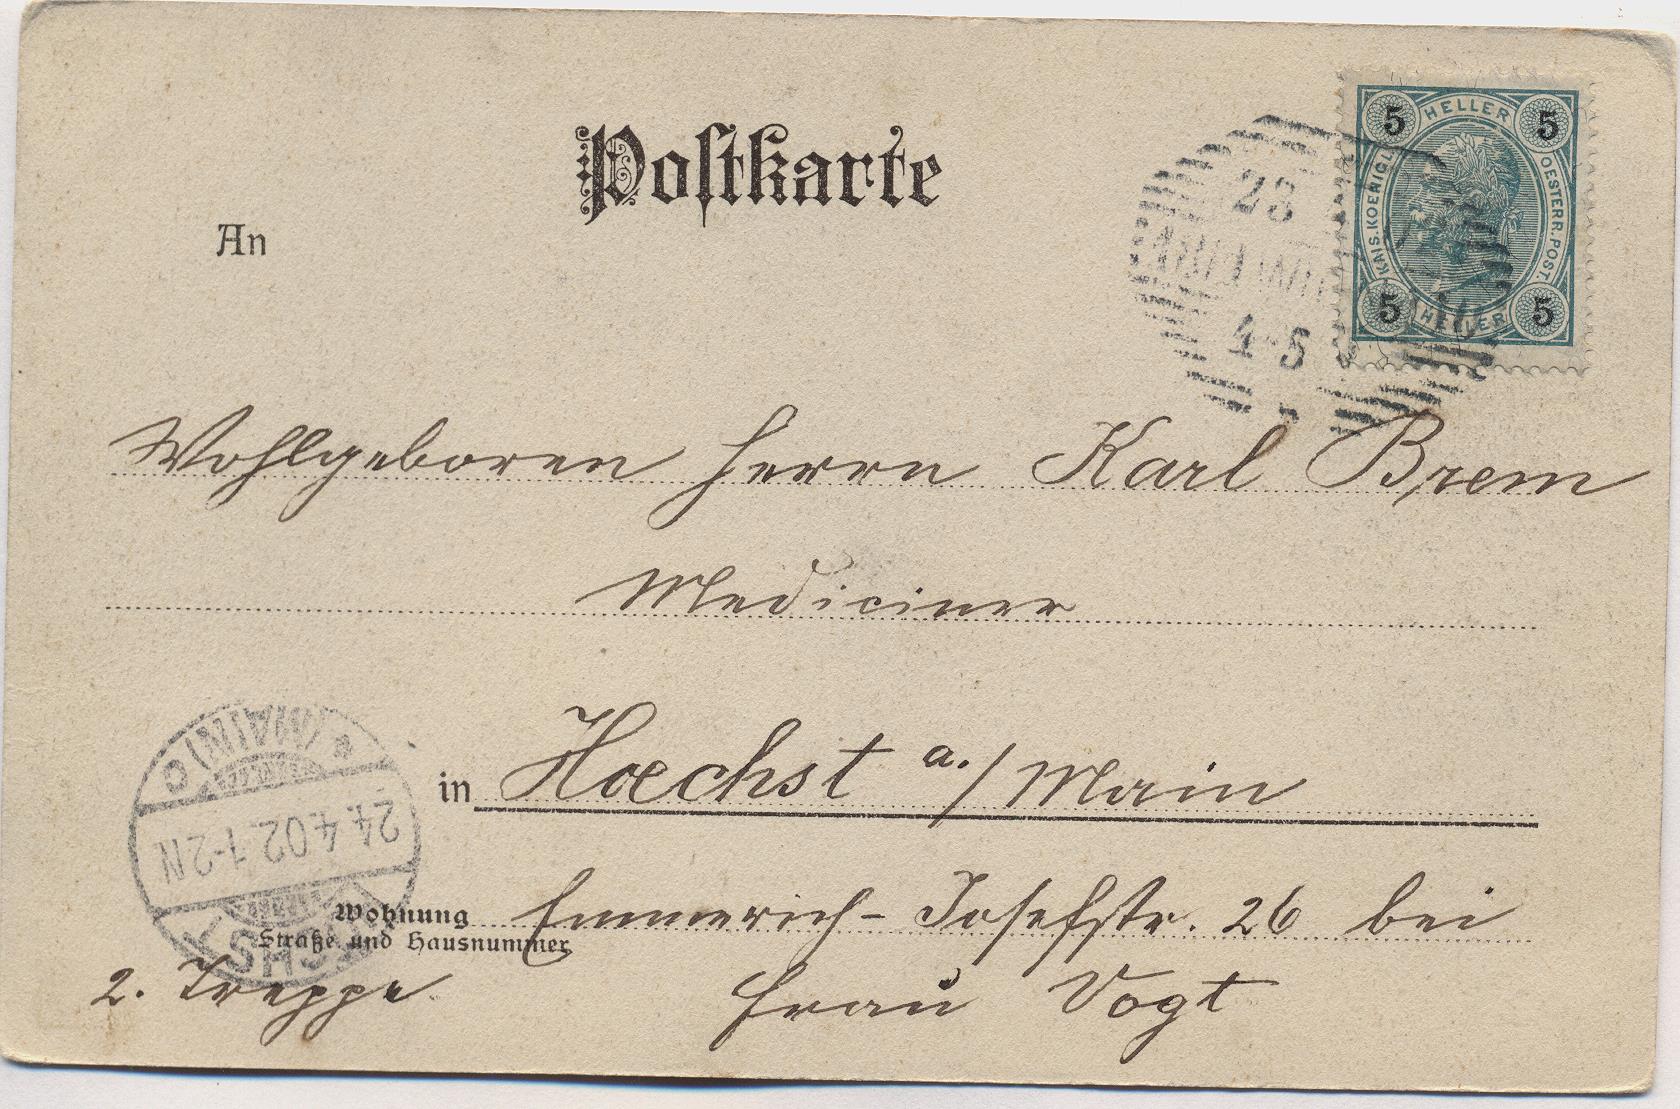 Postkarte
An
5 HELLER 5
KAIS. KOENIGL. OESTERR. POST.
5 HELLER 5
23
4-5
Wohlgeboren Herrn Karl Brem
Mediciner
in Hoechst a./Main
Wohnung Emmerich-Josefstr. 26 bei
Straße und Hausnummer
2. Treppe. Frau Vogt
HÖCHST
24.4.02.1-2N
(MAIN) C